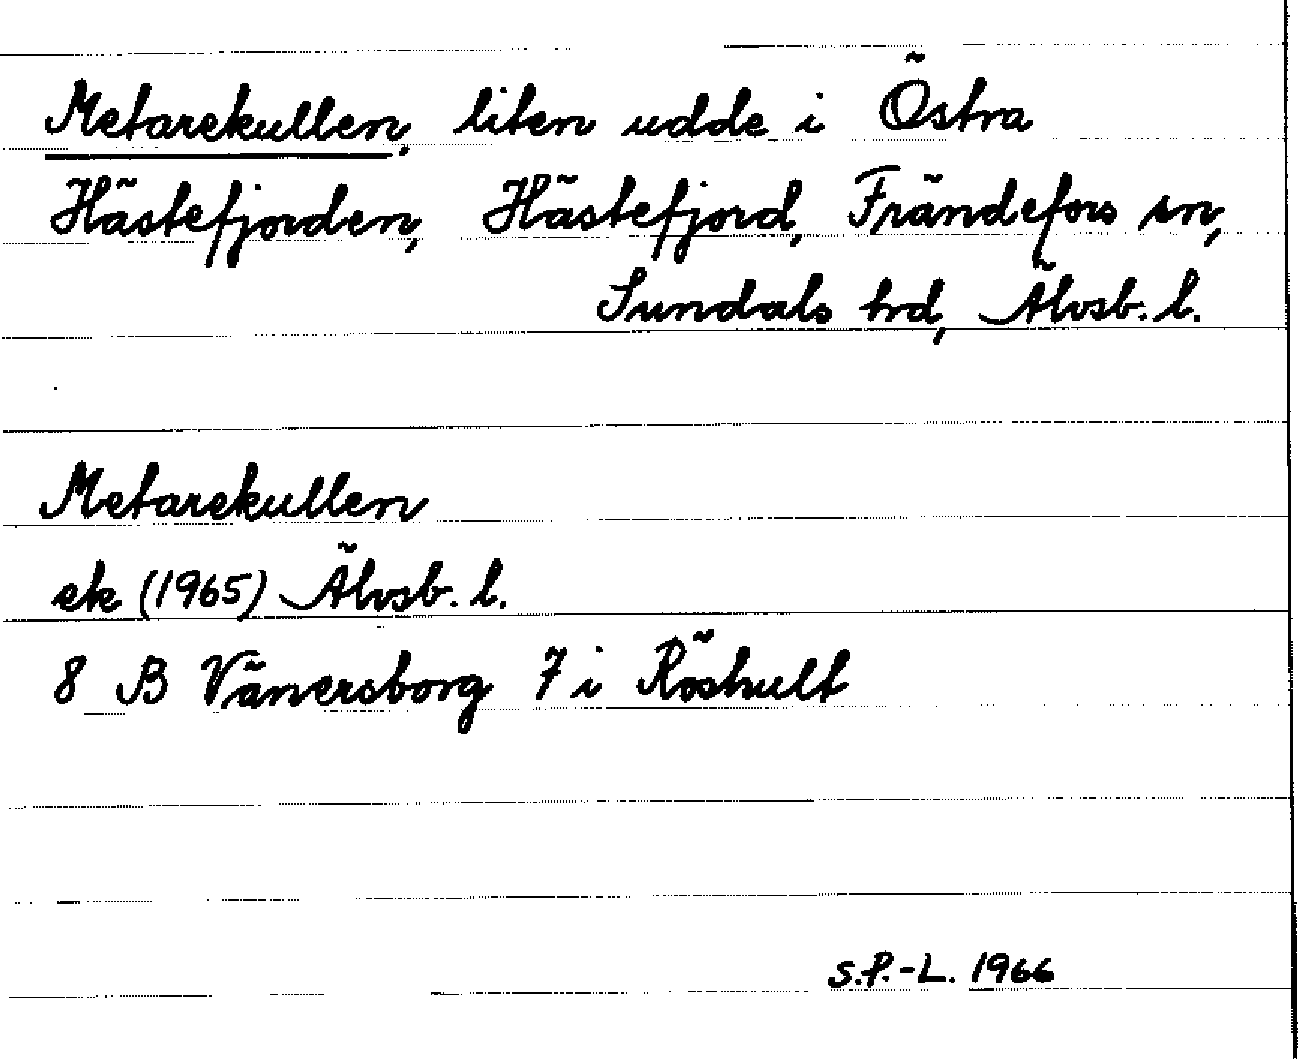 Metarekullen, liten udde i Östra
Hästefjorden, Hästefjord, Frändefors sn,
Sundals hrd, Älvsb. l.
Metarekullen
ek (1965) Älvsb. l.
8 B Vänersborg 7 i Röshult
S.P.-L. 1966